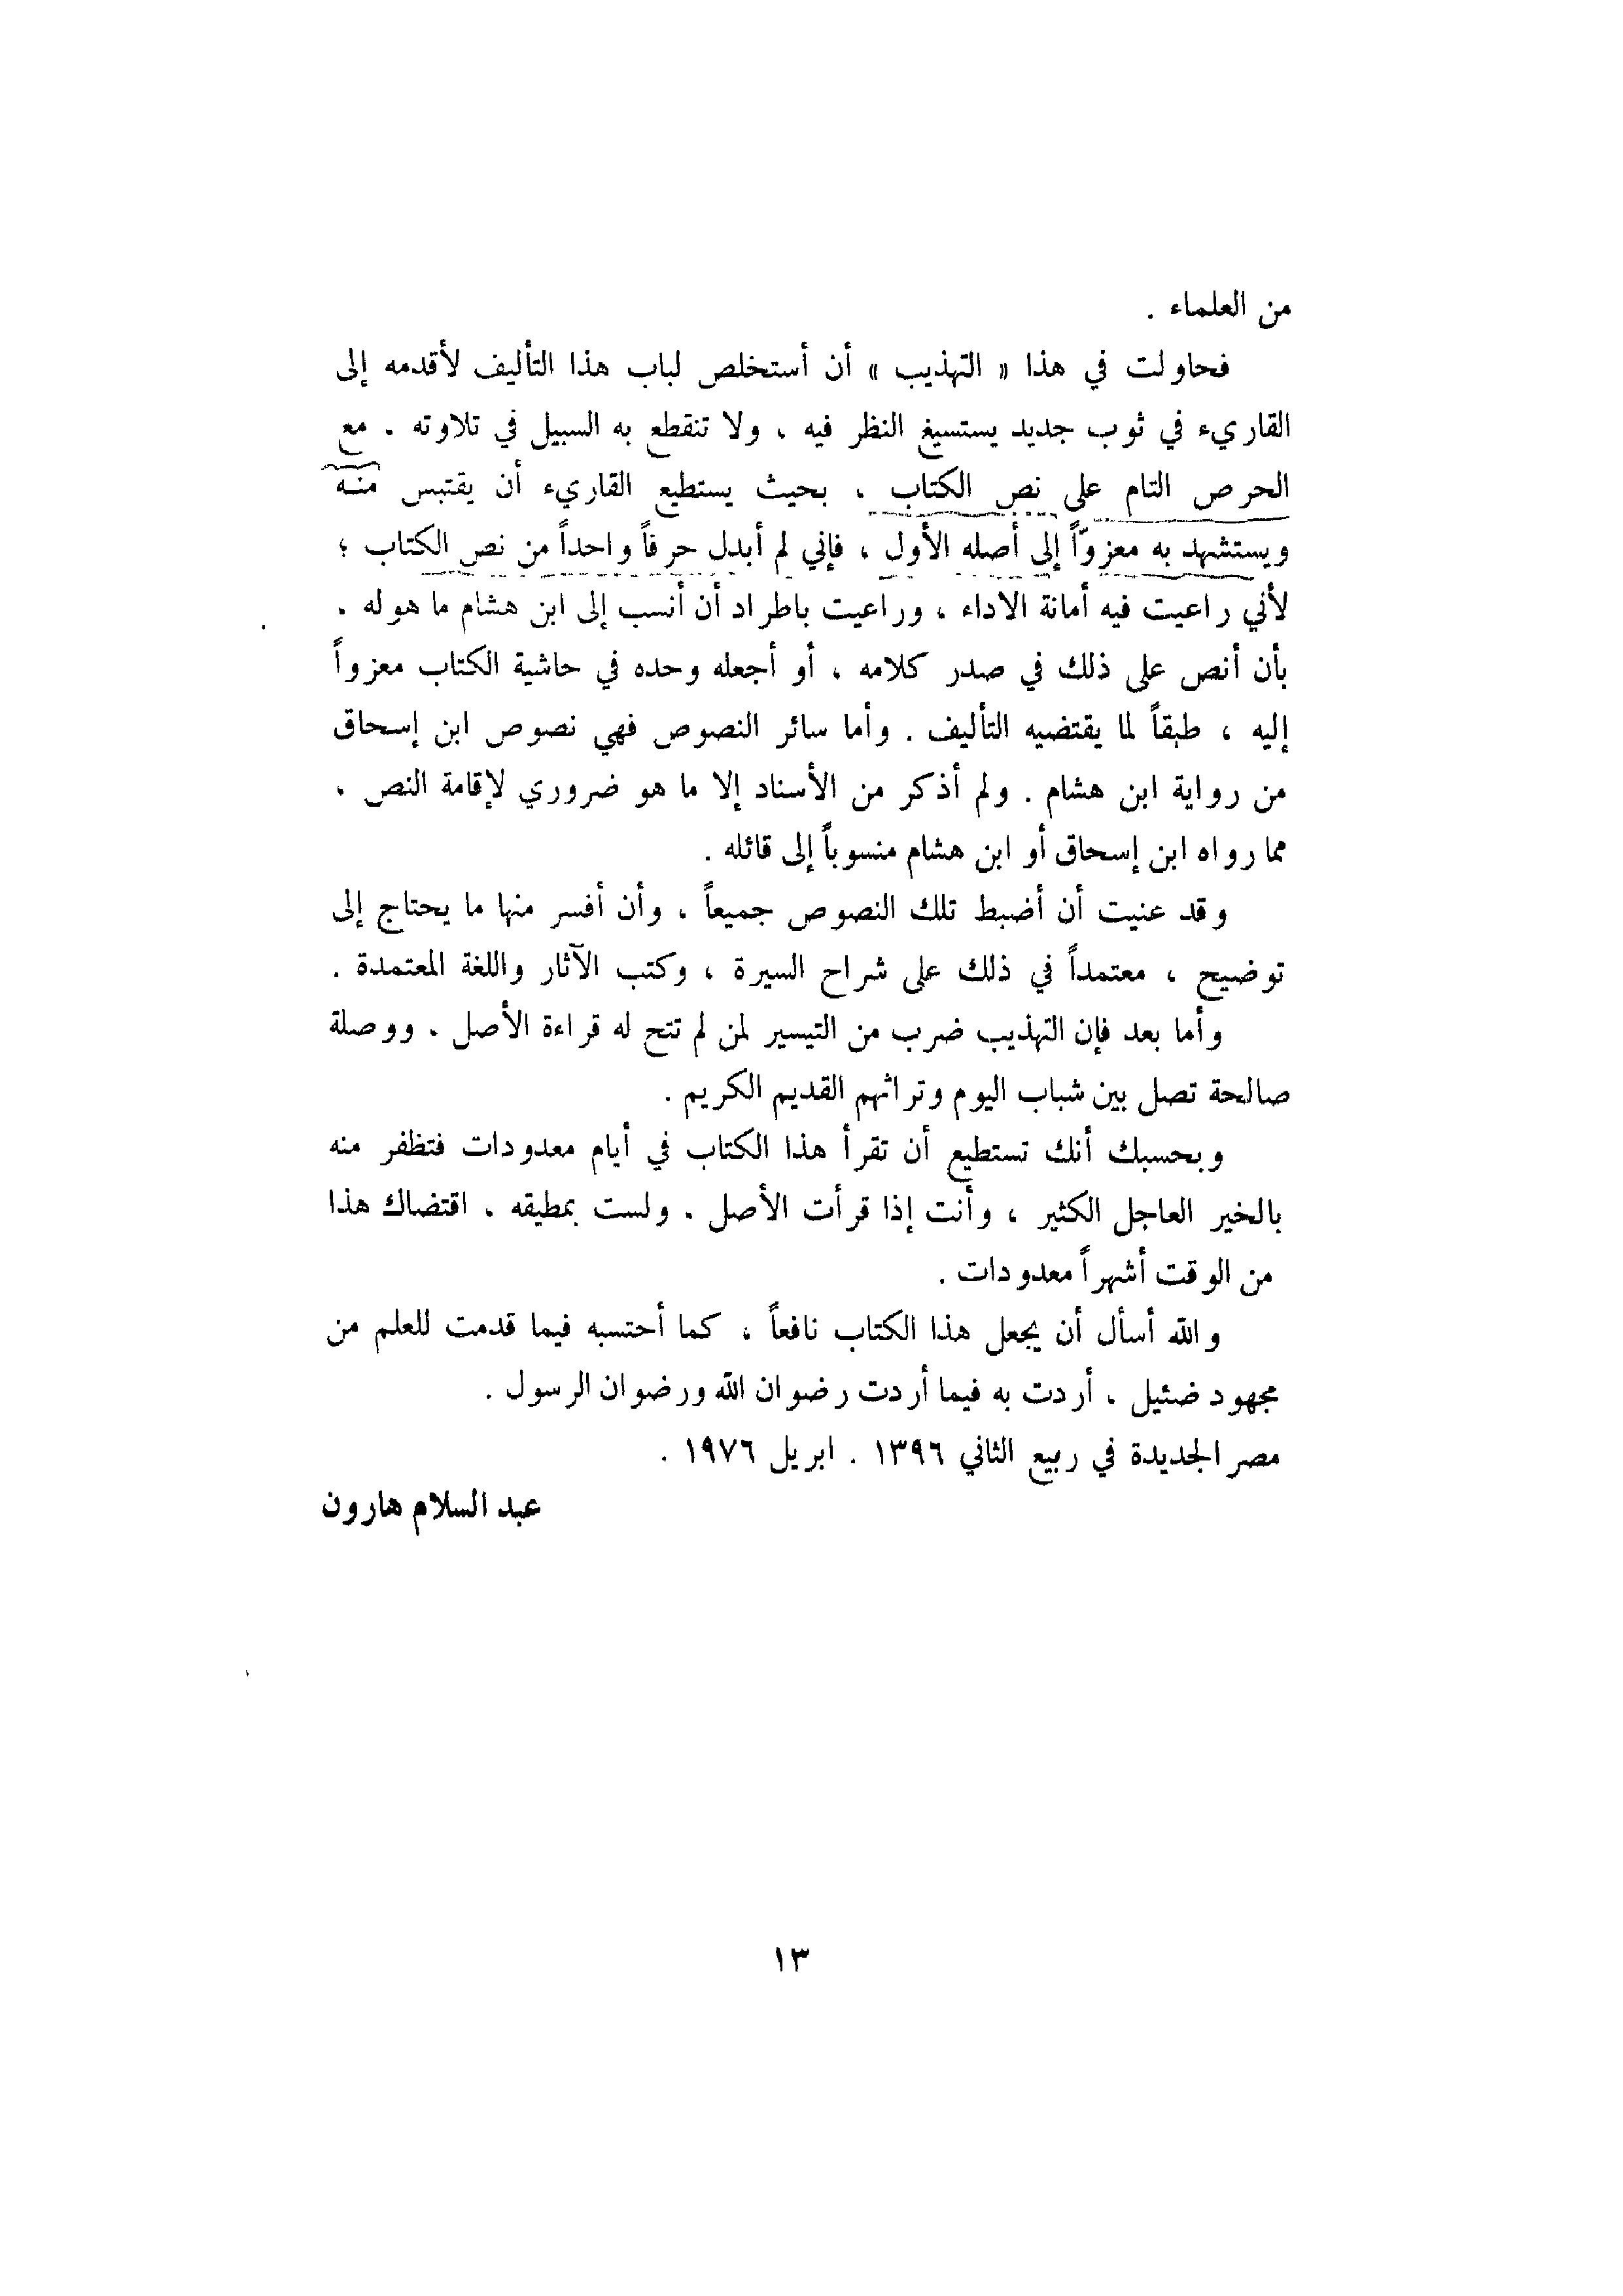 من العلماء .
فحاولت في هذا « التهذيب » أن أستخلص لباب هذا التأليف لأقدمه إلى
القاريء في ثوب جديد يستسيغ النظر فيه ، ولا تنقطع به السبيل في تلاوته . مع
الحرص التام على نص الكتاب ، بحيث يستطيع القاريء أن يقتبس منه
ويستشهد به معزوّاً إلى أصله الأول ، فإني لم أبدل حرفاً واحداً من نص الكتاب ؛
لأني راعيت فيه أمانة الاداء ، وراعيت باطراد أن أنسب إلى ابن هشام ما هو له .
بأن أنص على ذلك في صدر كلامه ، أو أجعله وحده في حاشية الكتاب معزواً
إليه ، طبقاً لما يقتضيه التأليف . وأما سائر النصوص فهي نصوص ابن إسحاق
من رواية ابن هشام . ولم أذكر من الأسناد إلا ما هو ضروري لإقامة النص ،
مما رواه ابن إسحاق أو ابن هشام منسوباً إلى قائله .
وقد عنيت أن أضبط تلك النصوص جميعاً ، وأن أفسر منها ما يحتاج إلى
توضيح ، معتمداً في ذلك على شراح السيرة ، وكتب الآثار واللغة المعتمدة .
وأما بعد فإن التهذيب ضرب من التيسير لمن لم تتح له قراءة الأصل . ووصلة
صالحة تصل بين شباب اليوم وتراثهم القديم الكريم .
وبحسبك أنك تستطيع أن تقرأ هذا الكتاب في أيام معدودات فتظفر منه
بالخير العاجل الكثير ، وأنت إذا قرأت الأصل . ولست بمطيقه . اقتضاك هذا
من الوقت أشهراً معدودات .
والله أسأل أن يجعل هذا الكتاب نافعاً ، كما أحتسبه فيما قدمت للعلم من
مجهود ضئيل ، أردت به فيما أردت رضوان الله ورضوان الرسول .
مصر الجديدة في ربيع الثاني ١٣٩٦ . ابريل ١٩٧٦ .
عبد السلام هارون
١٣